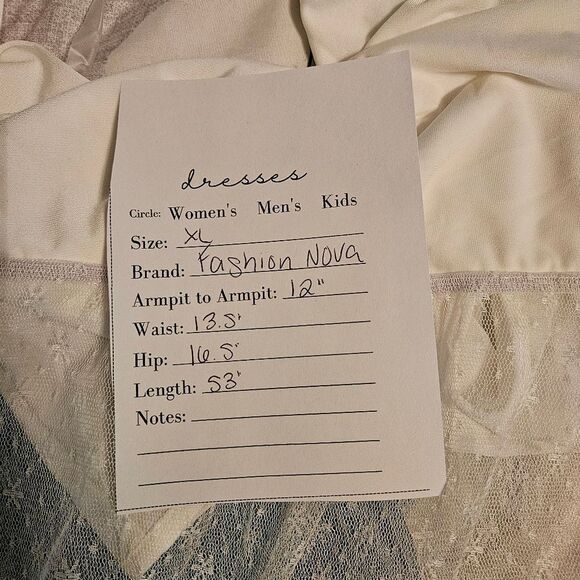 dresses
Circle: Women's Men's Kids
Size: XL
Brand: Fashion Nova
Armpit to Armpit: 12"
Waist: 13.5"
Hip: 16.5"
Length: 53"
Notes: